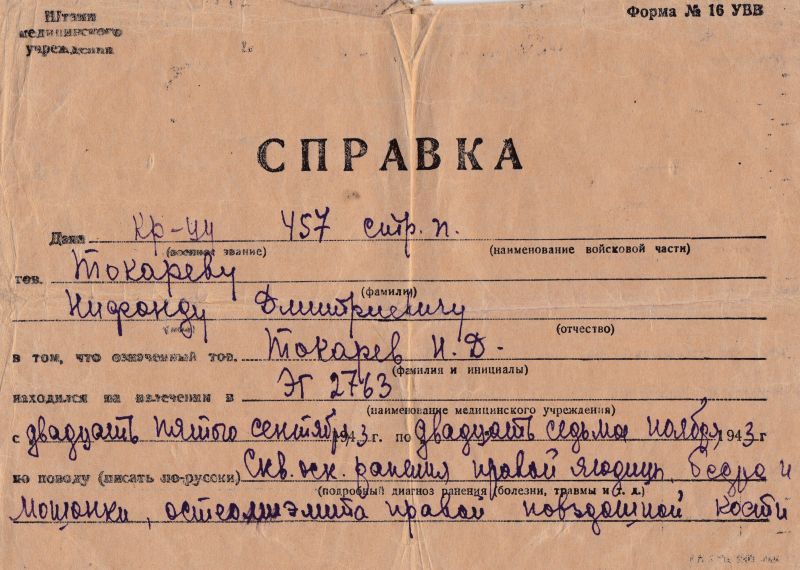 Штамп
медицинского
учреждения
Форма № 16 УВВ
СПРАВКА
Дана Кр-цу 457 стр. п.
(военное звание) (наименование войсковой части)
тов. Токареву
(фамилия)
Нифонду Дмитриевичу
(имя) (отчество)
в том, что означенный тов. Токарев Н. Д.
(фамилия и инициалы)
находился на излечении в ЭГ 2763
(наименование медицинского учреждения)
с двадцать пятого сентября 1943 г. по двадцать седьмое ноября 1943 г
по поводу (писать по-русски) Скв. оск. ранения правой ягодицы, бедра и
(подробный диагноз ранения (болезни, травмы и т. д.)
мошонки, остеомиэлита правой повздошной кости